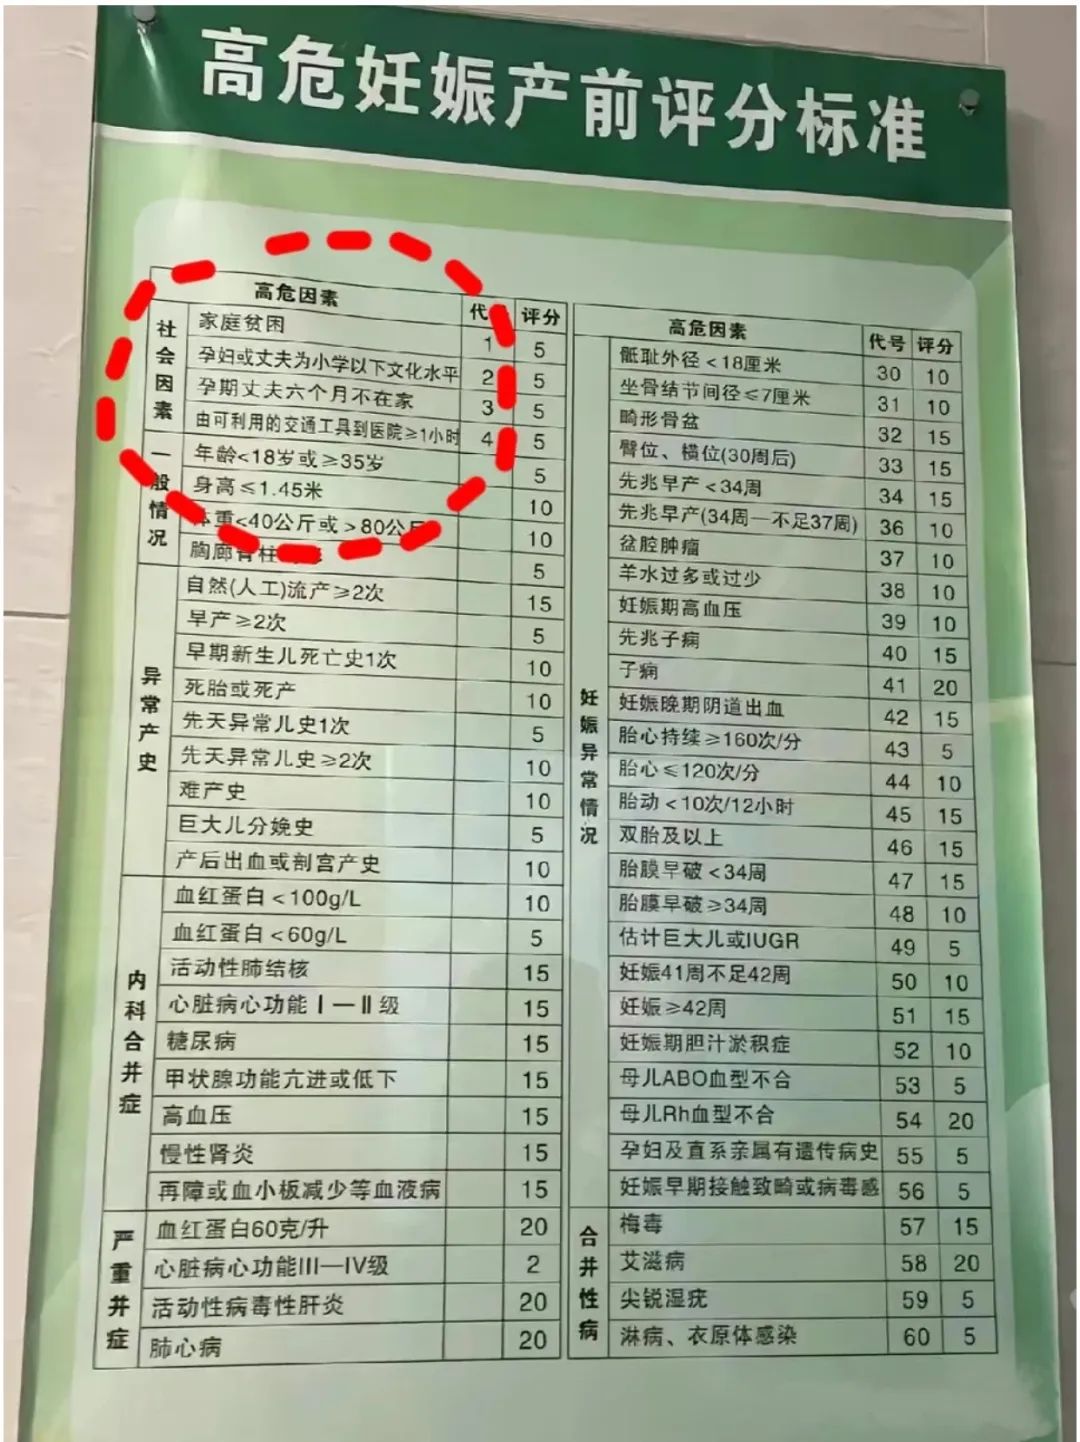 高危妊娠产前评分标准
高危因素 代 评分
社会因素
家庭贫困 1 5
孕妇或丈夫为小学以下文化水平 2 5
孕期丈夫六个月不在家 3 5
由可利用的交通工具到医院≥1小时 4 5
一般情况
年龄<18岁或≥35岁 5
身高≤1.45米 10
体重<40公斤或>80公斤 10
胸廊脊柱 5
异常产史
自然(人工)流产≥2次 15
早产≥2次 5
早期新生儿死亡史1次 10
死胎或死产 10
先天异常儿史1次 5
先天异常儿史≥2次 10
难产史 10
巨大儿分娩史 5
产后出血或剖宫产史 10
内科合并症
血红蛋白<100g/L 10
血红蛋白<60g/L 5
活动性肺结核 15
心脏病心功能Ⅰ—Ⅱ级 15
糖尿病 15
甲状腺功能亢进或低下 15
高血压 15
慢性肾炎 15
再障或血小板减少等血液病 15
严重并症
血红蛋白60克/升 20
心脏病心功能III—IV级 2
活动性病毒性肝炎 20
肺心病 20
高危因素 代号 评分
妊娠异常情况
骶耻外径<18厘米 30 10
坐骨结节间径≤7厘米 31 10
畸形骨盆 32 15
臀位、横位(30周后) 33 15
先兆早产<34周 34 15
先兆早产(34周—不足37周) 36 10
盆腔肿瘤 37 10
羊水过多或过少 38 10
妊娠期高血压 39 10
先兆子痫 40 15
子痫 41 20
妊娠晚期阴道出血 42 15
胎心持续≥160次/分 43 5
胎心≤120次/分 44 10
胎动<10次/12小时 45 15
双胎及以上 46 15
胎膜早破<34周 47 15
胎膜早破≥34周 48 10
估计巨大儿或IUGR 49 5
妊娠41周不足42周 50 10
妊娠≥42周 51 15
妊娠期胆汁淤积症 52 10
母儿ABO血型不合 53 5
母儿Rh血型不合 54 20
孕妇及直系亲属有遗传病史 55 5
妊娠早期接触致畸或病毒感 56 5
合并性病
梅毒 57 15
艾滋病 58 20
尖锐湿疣 59 5
淋病、衣原体感染 60 5